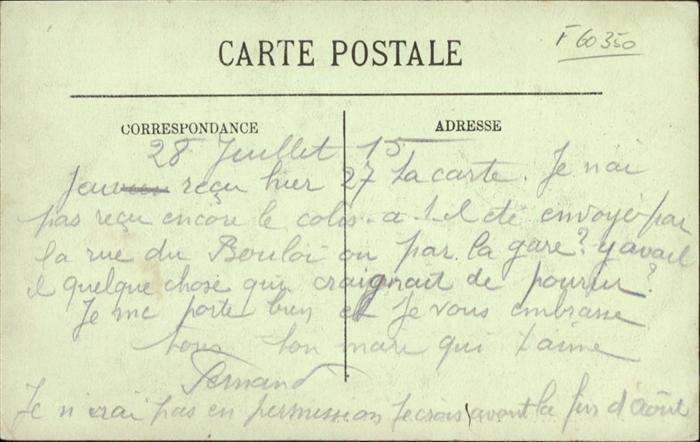 F 60350
CARTE POSTALE
CORRESPONDANCE
ADRESSE
28 Juillet 15
reçu hier 27 la carte. Je n'ai
pas reçu encore le colis. a t-il été envoyé par
la rue du Bouloi ou par la gare? y avait
il quelque chose qui craignait de pourrir?
Je me porte bien et je vous embrasse
tous ton mari qui t'aime
Fernand
Je n'irai pas en permission je crois avant la fin d'août